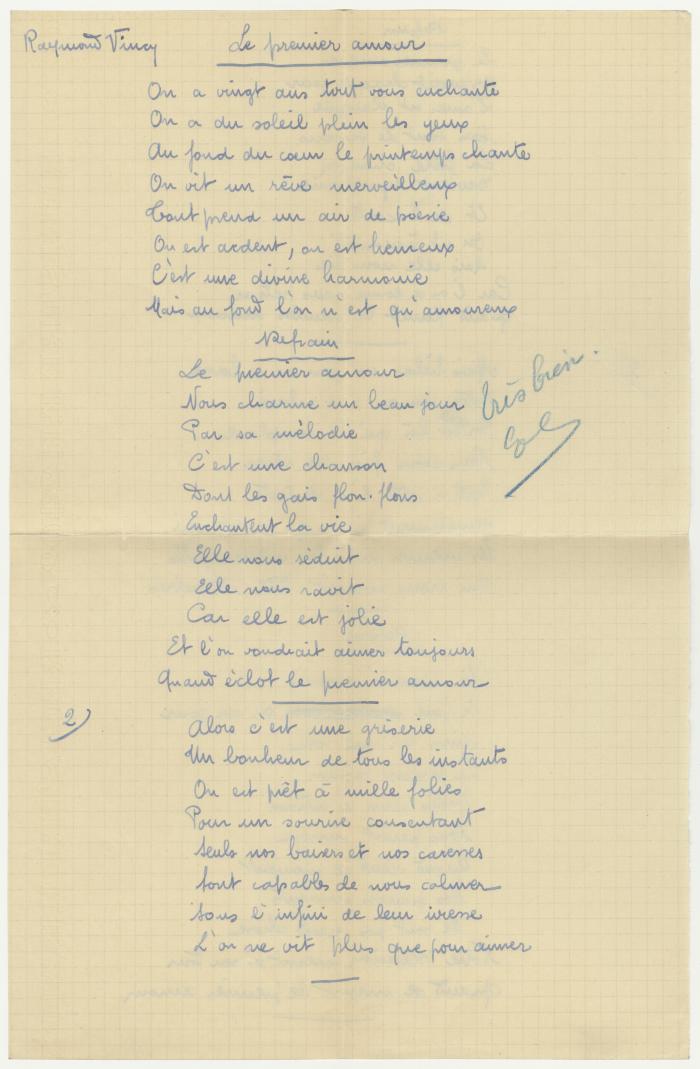 Raymond Vincy
Le premier amour
On a vingt ans tout vous enchante
On a du soleil plein les yeux
Au fond du cœur le printemps chante
On vit un rêve merveilleux
Tout prend un air de poésie
On est ardent, on est heureux
C'est une divine harmonie
Mais au fond l'on n'est qu'amoureux
Refrain
Le premier amour
Nous charme un beau jour
Par sa mélodie
C'est une chanson
Dont les gais flon-flons
Enchantent la vie
Elle nous séduit
Elle nous ravit
Car elle est jolie
Et l'on voudrait aimer toujours
Quand éclot le premier amour
très bien.
2)
Alors c'est une griserie
Un bonheur de tous les instants
On est prêt à mille folies
Pour un sourire consentant
Seuls nos baisers et nos caresses
Sont capables de nous calmer
Sous l'infini de leur ivresse
L'on ne vit plus que pour aimer